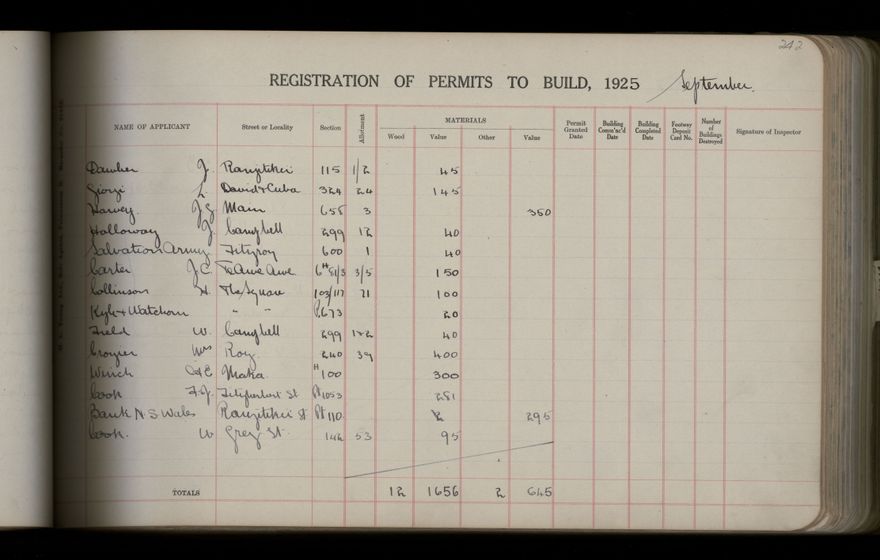 242
REGISTRATION OF PERMITS TO BUILD, 1925 September.
NAME OF APPLICANT Street or Locality Section Allotment MATERIALS Wood Value Other Value Permit Granted Date Building Comm'nc'd Date Building Completed Date Footway Deposit Card No. Number of Buildings Destroyed Signature of Inspector
Dawber J. Rangitikei 115 1/2 45
Giorgi L. David & Cuba 324 24 145
Harvey. J.G. Main 655 3 350
Holloway J. Campbell 299 12 40
Salvation Army Fitzroy 600 1 40
Carter J.C. Te Awe Awe 3/5 150
Collinson H. The Square 103/117 21 100
Kyle & Watchorn " " 673 20
Field W. Campbell 299 1&2 40
Crozier Mrs Roy. 240 39 400
Winch Maka H 100 300
Cook F.J. Fitzherbert St Pt 1053 281
Bank N.S Wales Rangitikei St Pt 110. 2 295
Cook. W Grey St. 146 53 95
TOTALS 12 1656 2 645